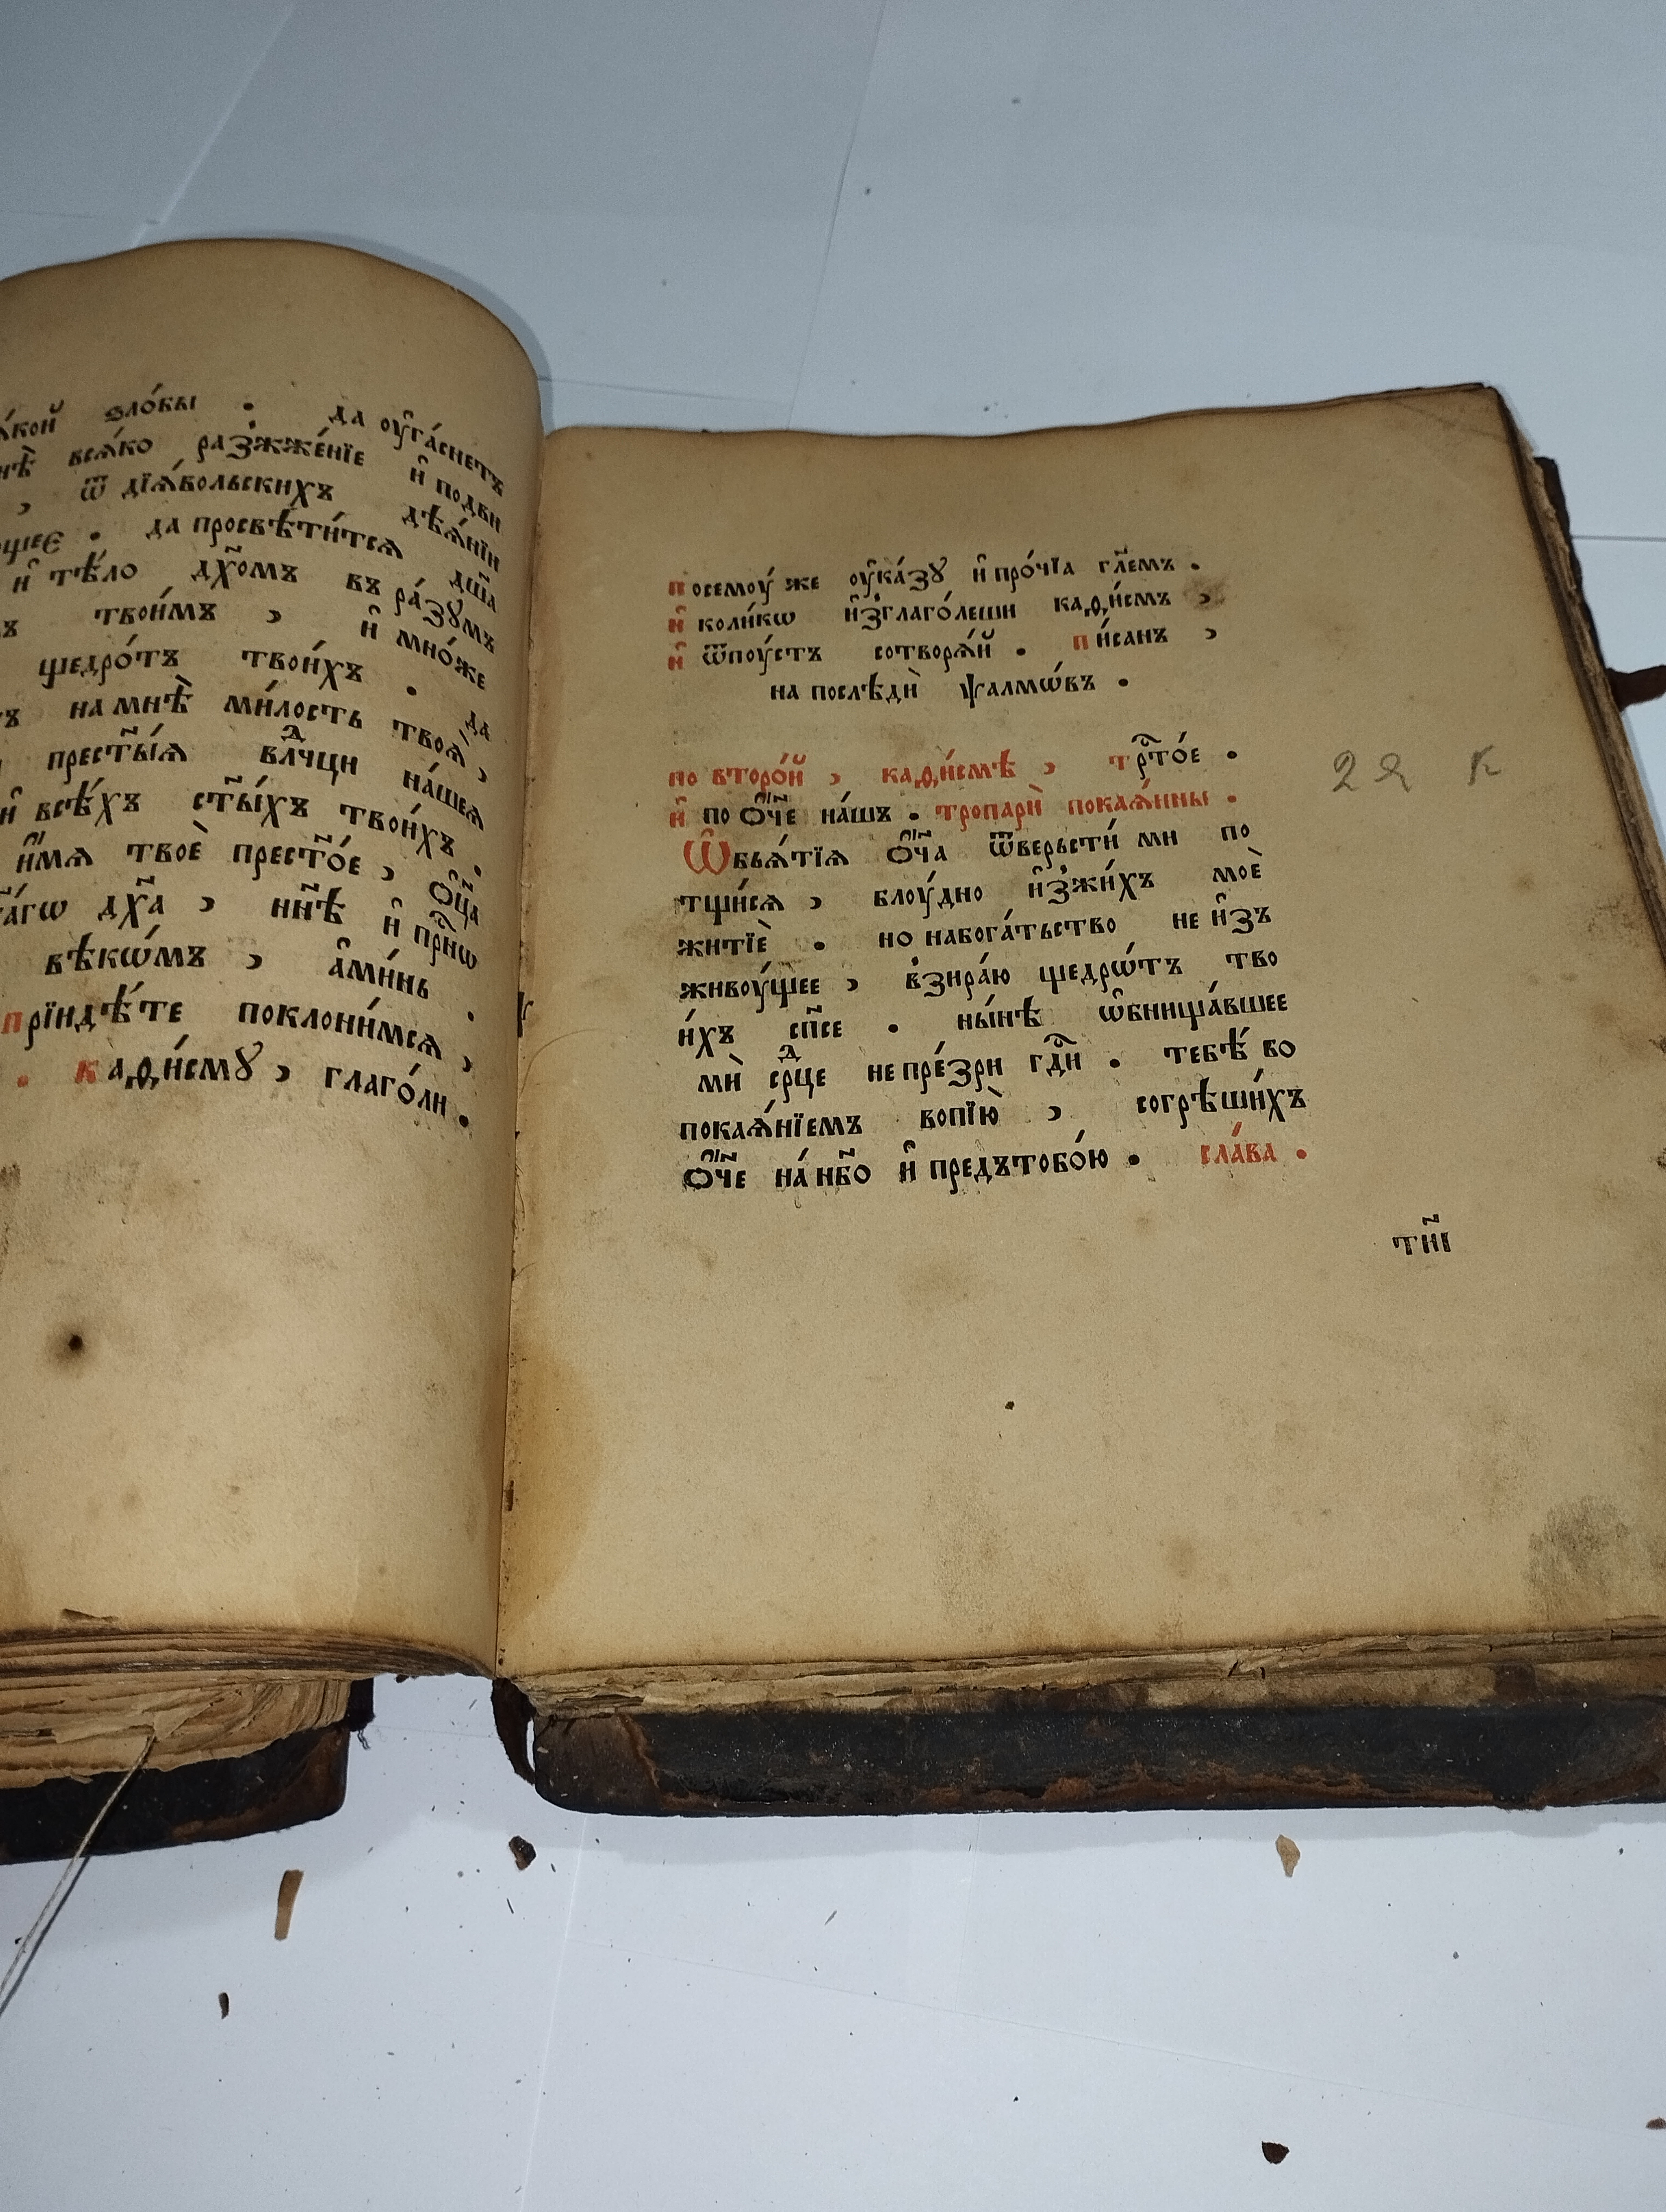 ѕло́бы . да оу҆га́снетъ
всѧ́ко разжже́нїе и҆ подви
, ѿ дїѧ́вольскихъ дѣѧ́нїи
. да просвѣти́тсѧ дш҃а
и҆ тѣ́ло дх҃омъ въ ра́зꙋмъ
твои́мъ , и҆ мно́же
щедро́тъ твои́хъ . да
на мнѣ̀ ми́лость твоѧ̀ ,
прест҃ы́ѧ влⷣчци на́шеѧ
и҆ всѣ́хъ ст҃ы́хъ твои́хъ .
и҆́мѧ твоѐ прест҃о́е , ѻ҆ц҃а
дх҃а , нн҃ѣ и҆ при҇сню
вѣкѡ́мъ , а҆ми́нь .
прїидѣ́те поклони́мсѧ ,
. каѳи́смꙋ , глаго́ли .
посемоу́ же оу҆ка́зꙋ и҆ про́чїа гл҃емъ .
и҆ коли́кѡ и҆зглаго́леши каѳи́смъ ,
и҆ ѿпоу́стъ сотворѧ́й . пи́санъ ,
на послѣдѝ ѱалмѡ́въ .
по второ́й , каѳи́смѣ , трⷭ҇то́е .
и҆ по ѻ҆́ч҃е на́шъ . тропарѝ покаѧ́нны .
Ѡ҆бьѧ́тїѧ ѻ҆́ч҃а ѿверьсти́ ми по
тщи́сѧ , блоу́дно и҆зжи́хъ моѐ
житїѐ . но набога́тьство не и҆зъ
живоу́щее , взира́ю щедрѡ́тъ тво
и́хъ сп҃се . ны́нѣ ѡ҆бнища́вшее
мѝ срⷣце не пре́зри гдⷭ҇и . тебѣ́ во
покаѧ́нїемъ вопїю̀ , согрѣши́хъ
ѻ҆́ч҃е на́ нб҃о и҆ предътобо́ю . сла́ва .
22 к
тн҃і